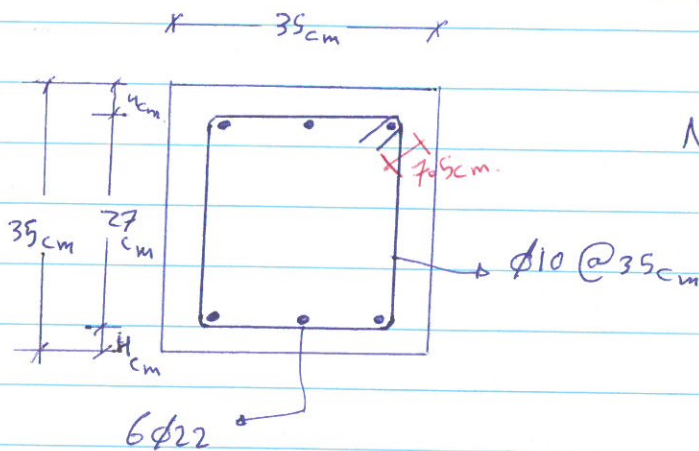 35cm
4cm
N
7.5cm.
35cm
27
cm
ϕ10 @ 35cm
4
cm
6ϕ22